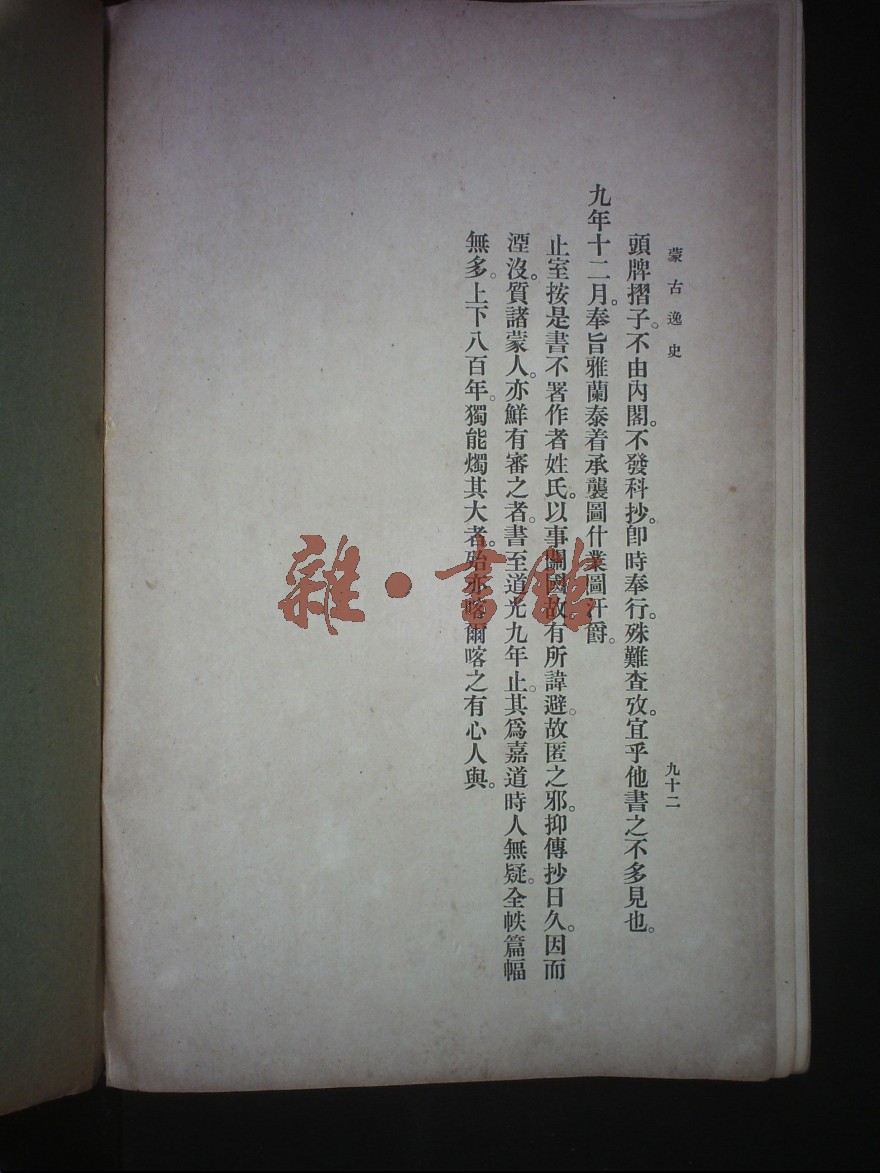 蒙古逸史
九十二
頭牌摺子。不由內閣。不發科抄。卽時奉行。殊難查攷。宜乎他書之不多見也。
九年十二月。奉旨雅蘭泰着承襲圖什業圖汗爵。
止室按是書不署作者姓氏。以事關國故。有所諱避。故匿之邪。抑傳抄日久。因而
湮沒。質諸蒙人。亦鮮有審之者。書至道光九年止。其爲嘉道時人無疑。全帙篇幅
無多。上下八百年。獨能燭其大者。殆亦喀爾喀之有心人與。
雜·書館